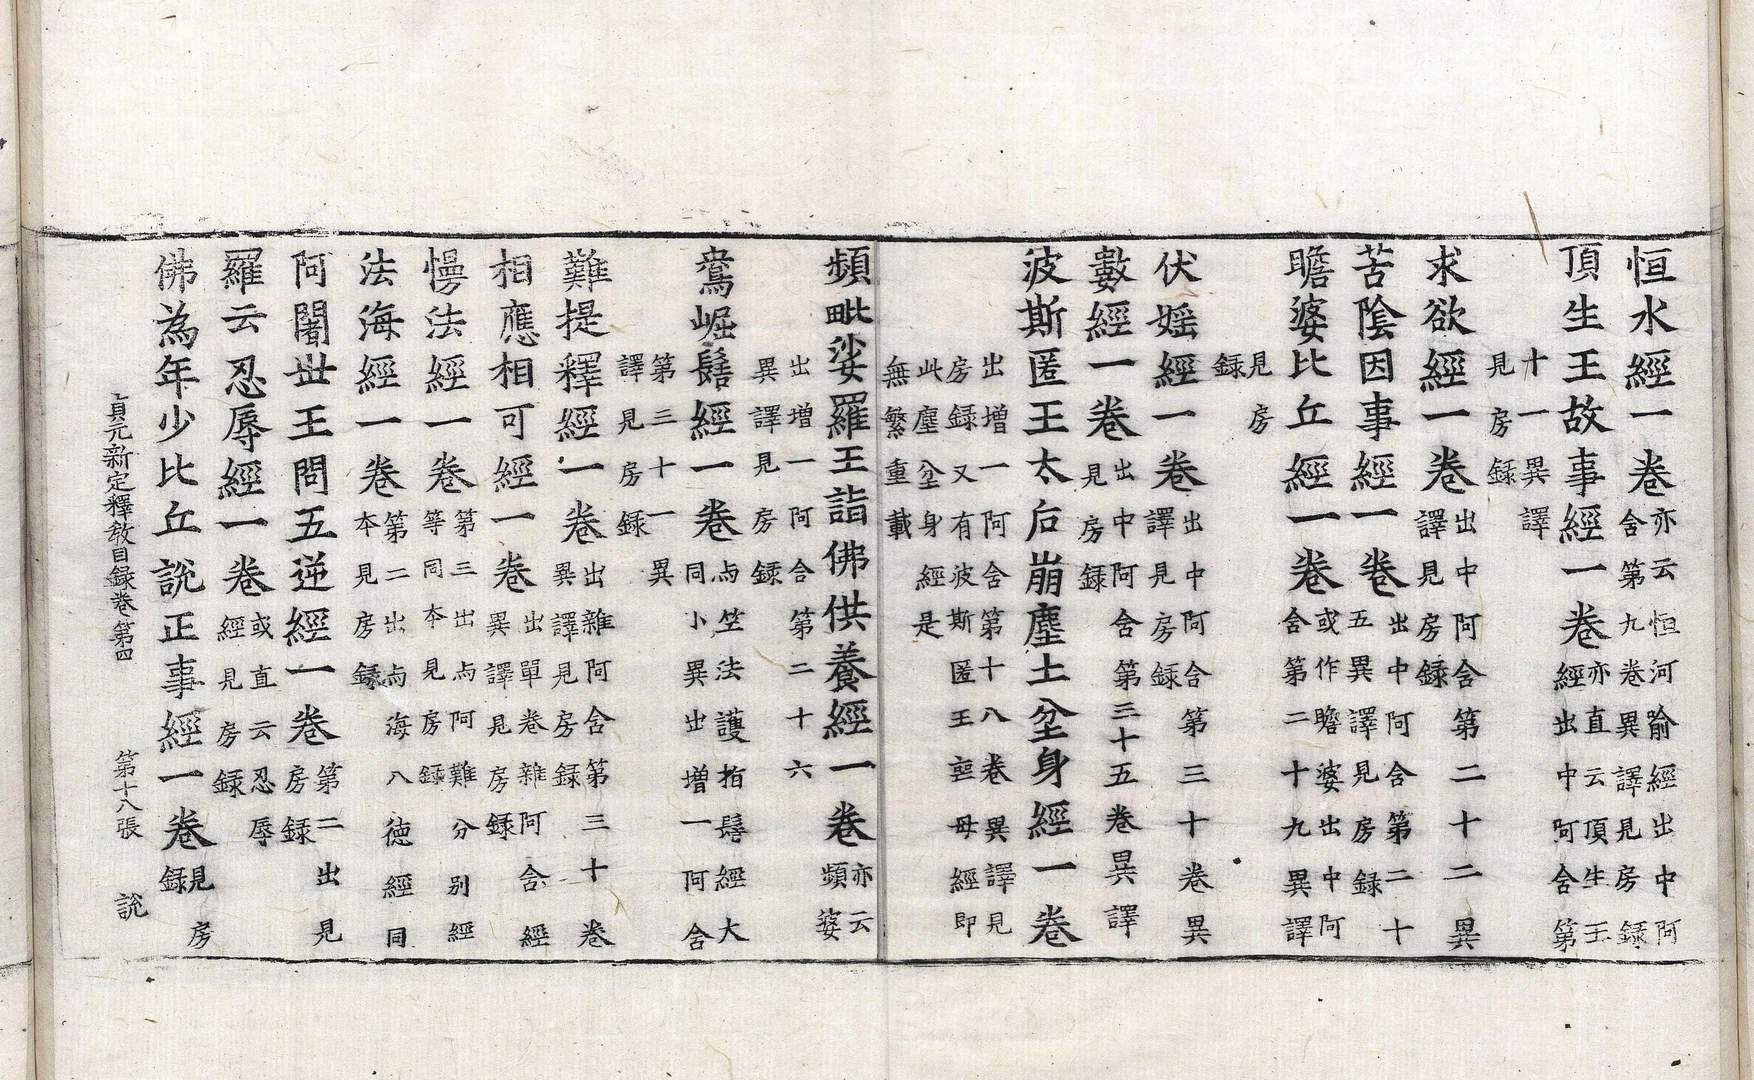 恒水經一卷亦云恒河喻經出中阿含第九卷異譯見房録
頂生王故事經一卷亦直云頂生王經出中阿含第
十一異譯見房録
求欲經一卷出中阿含第二十二異譯見房録
苦陰因事經一卷出中阿含第二十五異譯見房録
瞻婆比丘經一卷或作瞻婆出中阿含第二十九異譯
見房録
伏婬經一卷出中阿含第三十卷異譯見房録
數經一卷出中阿含第三十五卷異譯見房録
波斯匿王太后崩塵土坌身經一卷
出增一阿含第十八卷異譯見房録又有波斯匿王喪母經即
此塵坌身經是無繁重載
頻毗娑羅王詣佛供養經一卷亦云頻婆
出增一阿含第二十六異譯見房録
鴦崛髻經一卷与竺法護指髻經大同小異出增一阿含
第三十一異譯見房録
難提釋經一卷出雜阿含第三十卷異譯見房録
相應相可經一卷出單卷雜阿含經異譯見房録
慢法經一卷第三出与阿難分別經等同本見房録
法海經一卷第二出与海八徳經同本見房録
阿闍世王問五逆經一卷第二出見房録
羅云忍辱經一卷或直云忍辱經見房録
佛為年少比丘說正事經一卷見房録
貞元新定釋教目録卷第四 第十八張 說